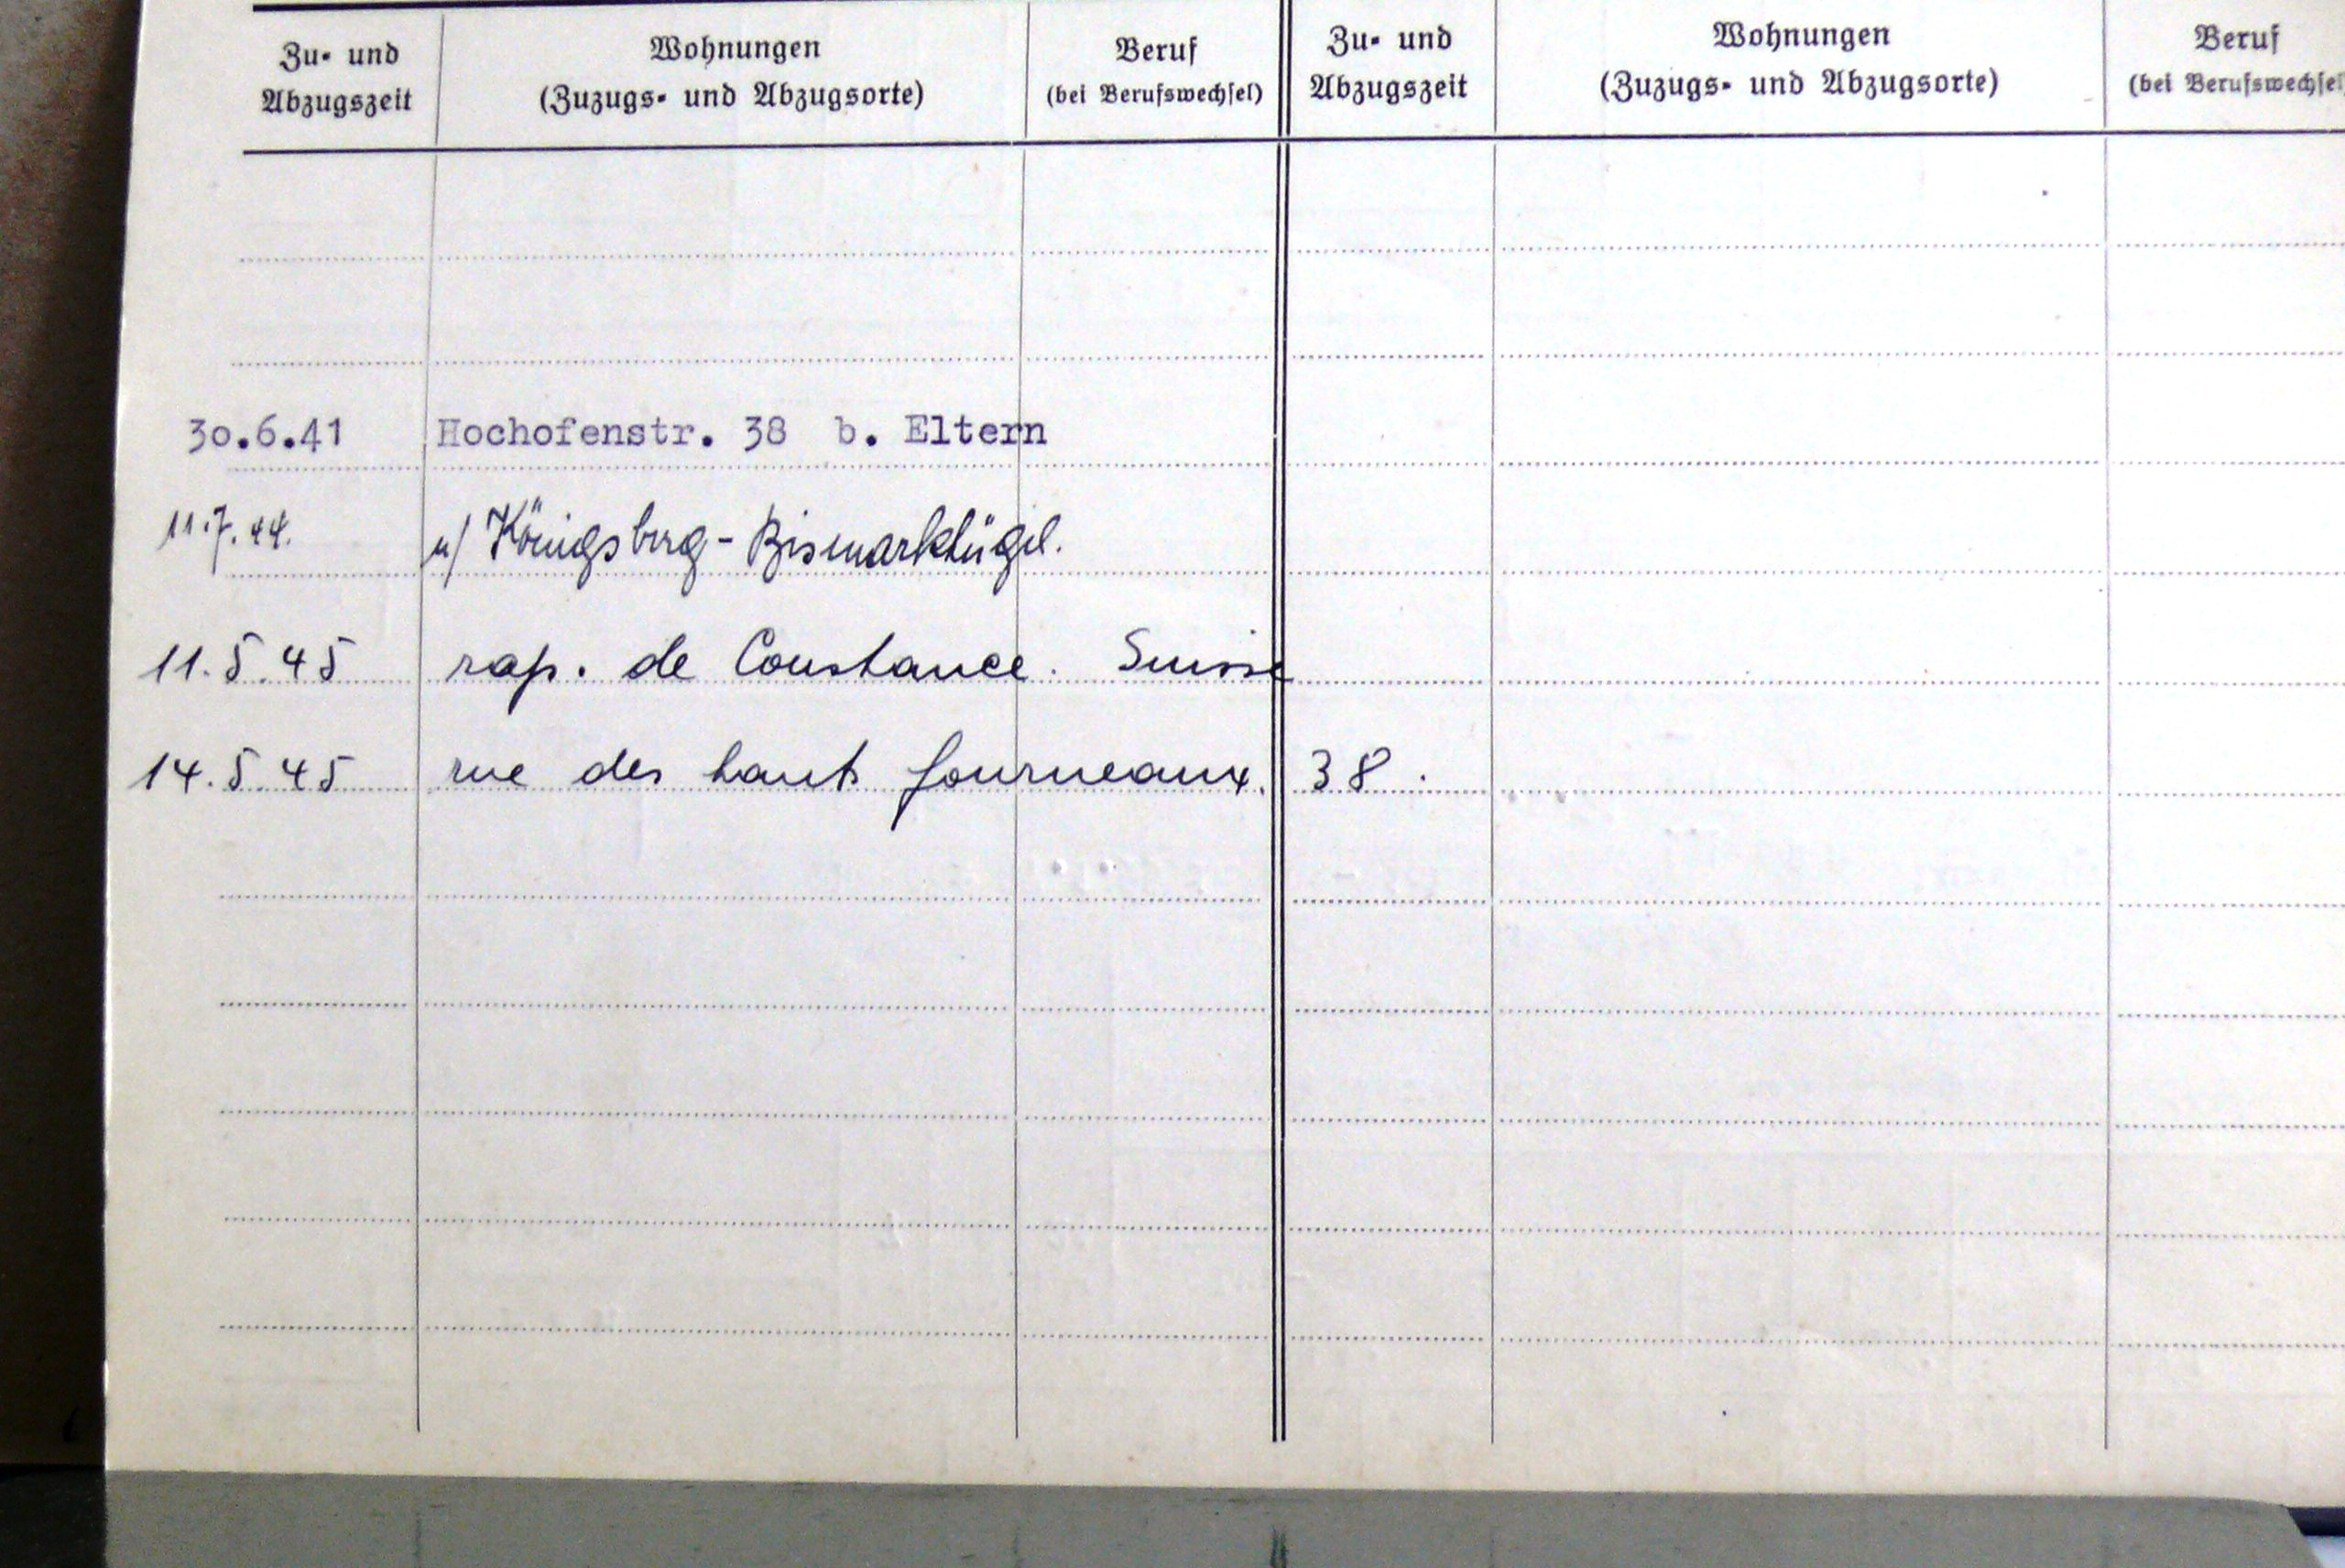 Zu- und Wohnungen Beruf Zu- und Wohnungen Beruf
Abzugszeit (Zuzugs- und Abzugsorte) (bei Berufswechsel) Abzugszeit (Zuzugs- und Abzugsorte) (bei Berufswechsel
30.6.41 Hochofenstr. 38 b. Eltern
11.7.44. n/ Königsberg-Bismarkhügel.
11.5.45 rap. de Constance. Suisse
14.5.45 rue des hauts fourneaux. 38.